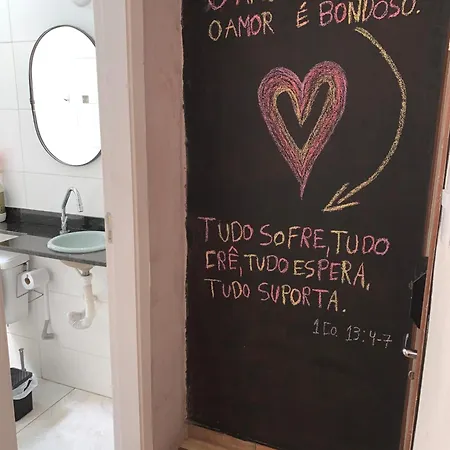 O AMOR É BONDOSO.
TUDO SOFRE, TUDO
CRÊ, TUDO ESPERA,
TUDO SUPORTA.
1 Co. 13:4-7